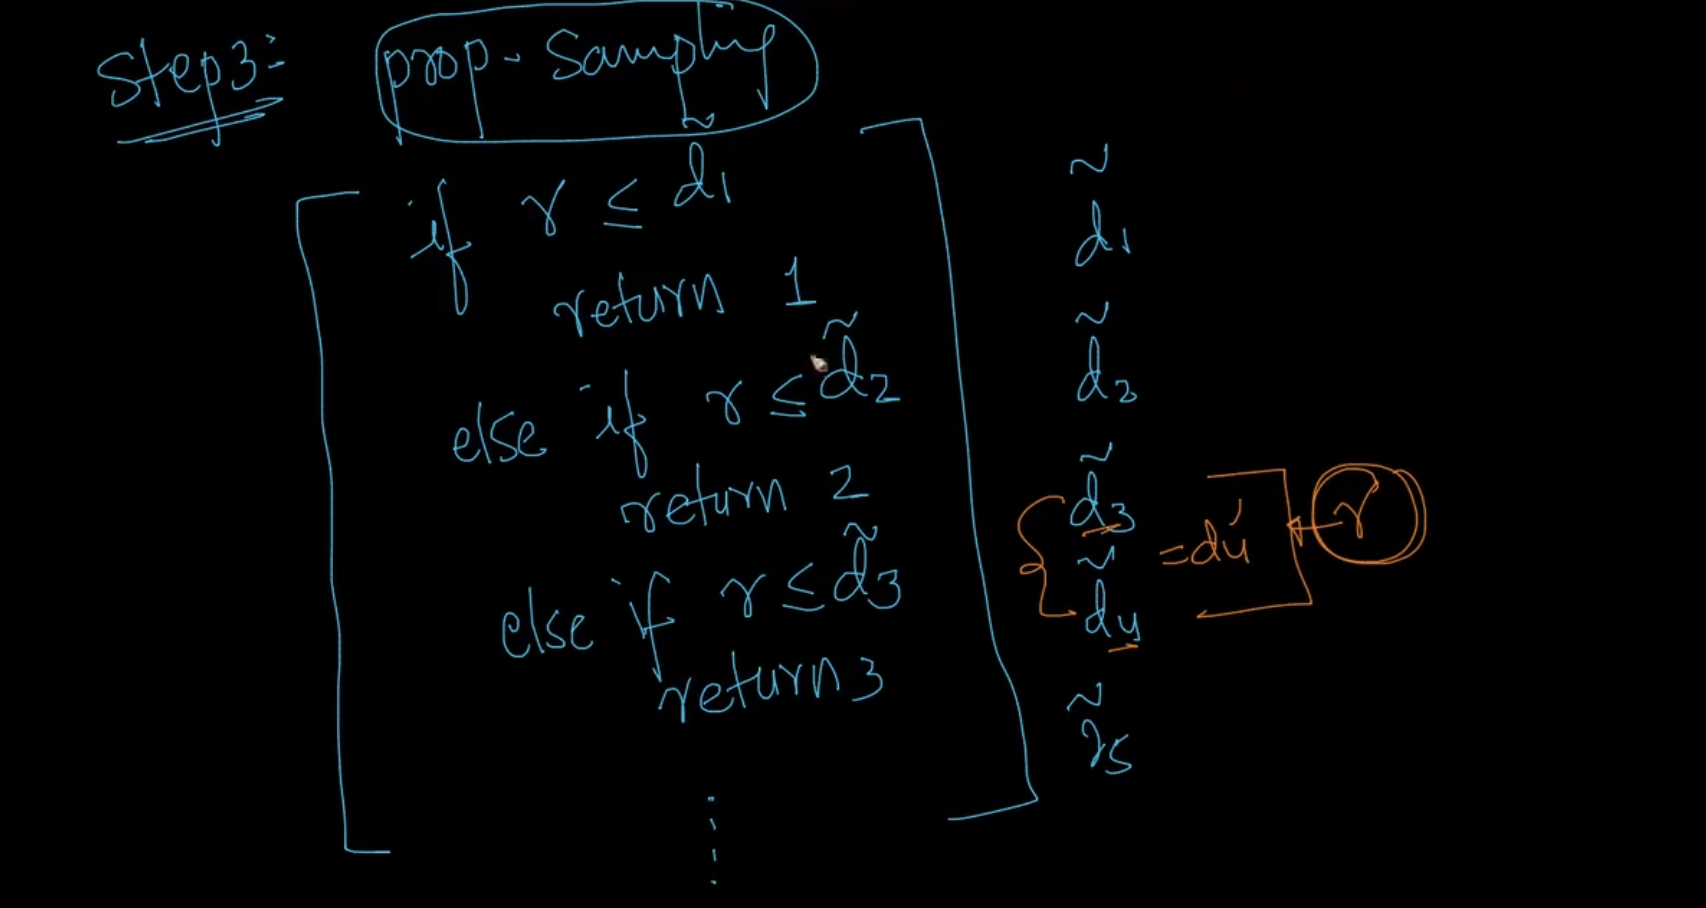 Step3:- prop. Sampling
if r ≤ d̃1
return 1
else if r ≤ d̃2
return 2
else if r ≤ d̃3
return 3
d̃1
d̃2
d̃3
d̃4 = d4' r